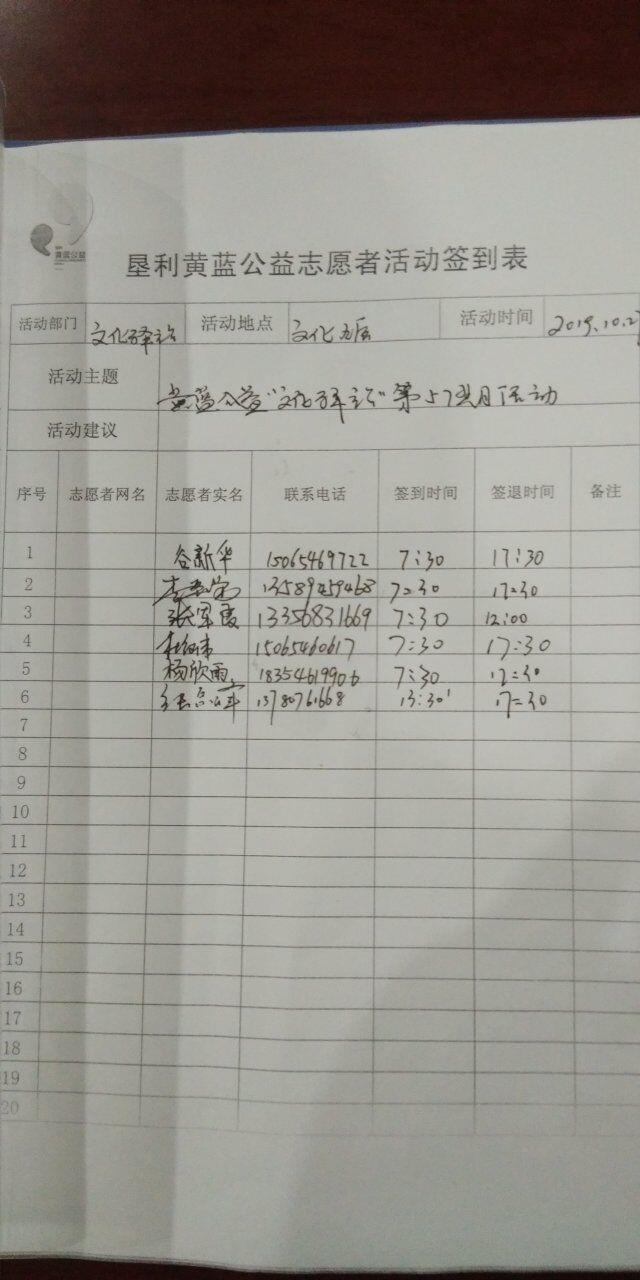 黄蓝公益
垦利黄蓝公益志愿者活动签到表
活动部门 文化驿站 活动地点 文化 活动时间 2019.10.27
活动主题 黄蓝公益“文化驿站”第57次 活动
活动建议
序号 志愿者网名 志愿者实名 联系电话 签到时间 签退时间 备注
1 谷新华 15065469722 7:30 17:30
2 13589459468 7:30 17:30
3 张军霞 13356831669 7:30 12:00
4 15065460617 7:30 17:30
5 杨欣雨 18354619906 7:30 17:30
6 13780761668 13:30 17:30
7
8
9
10
11
12
13
14
15
16
17
18
19
20